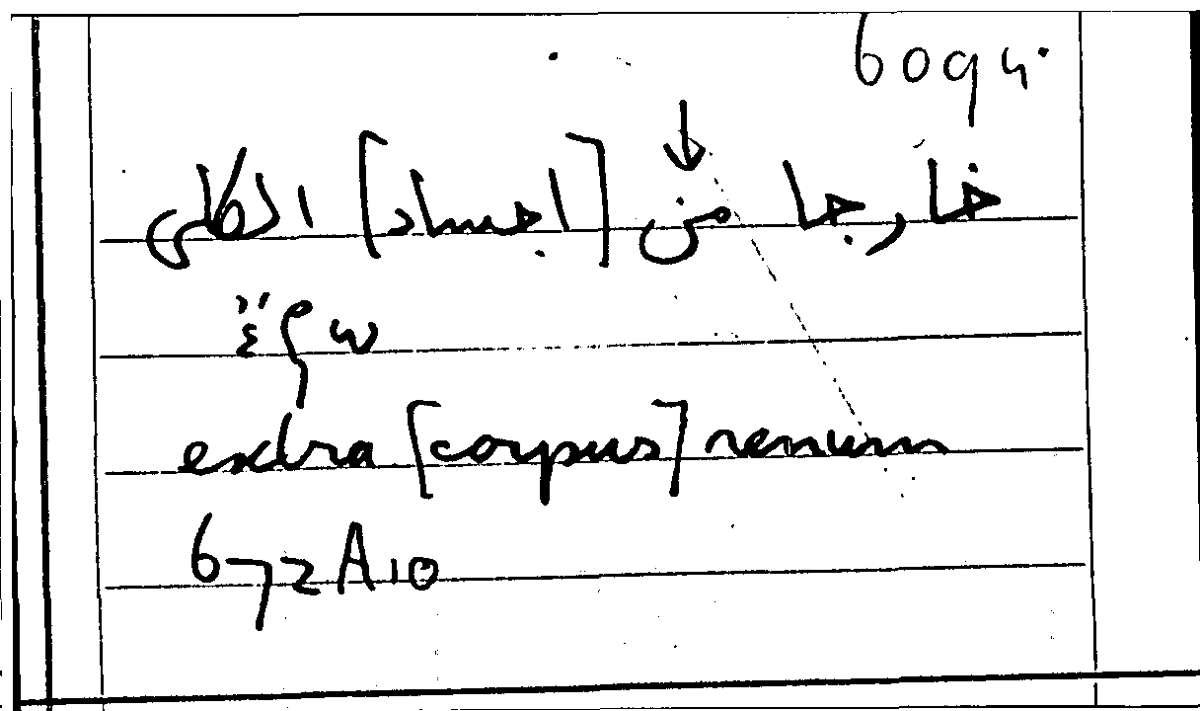 6094.
خارجا من [اجساد] الكلى
ἔξω
extra [corpus] renum
672A10